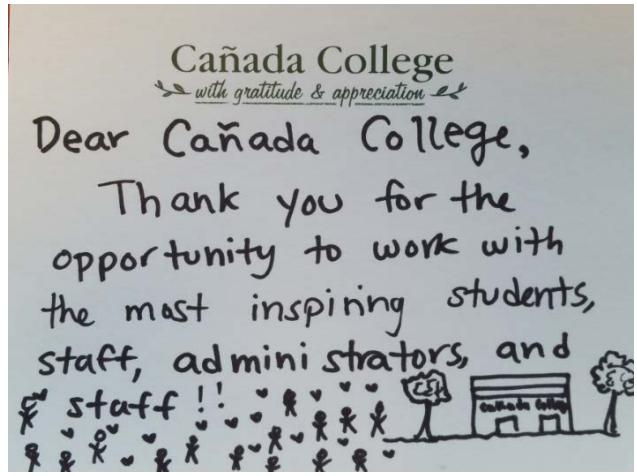 Cañada College
with gratitude & appreciation
Dear Cañada College,
Thank you for the
opportunity to work with
the most inspiring students,
staff, administrators, and
staff!!
Cañada College